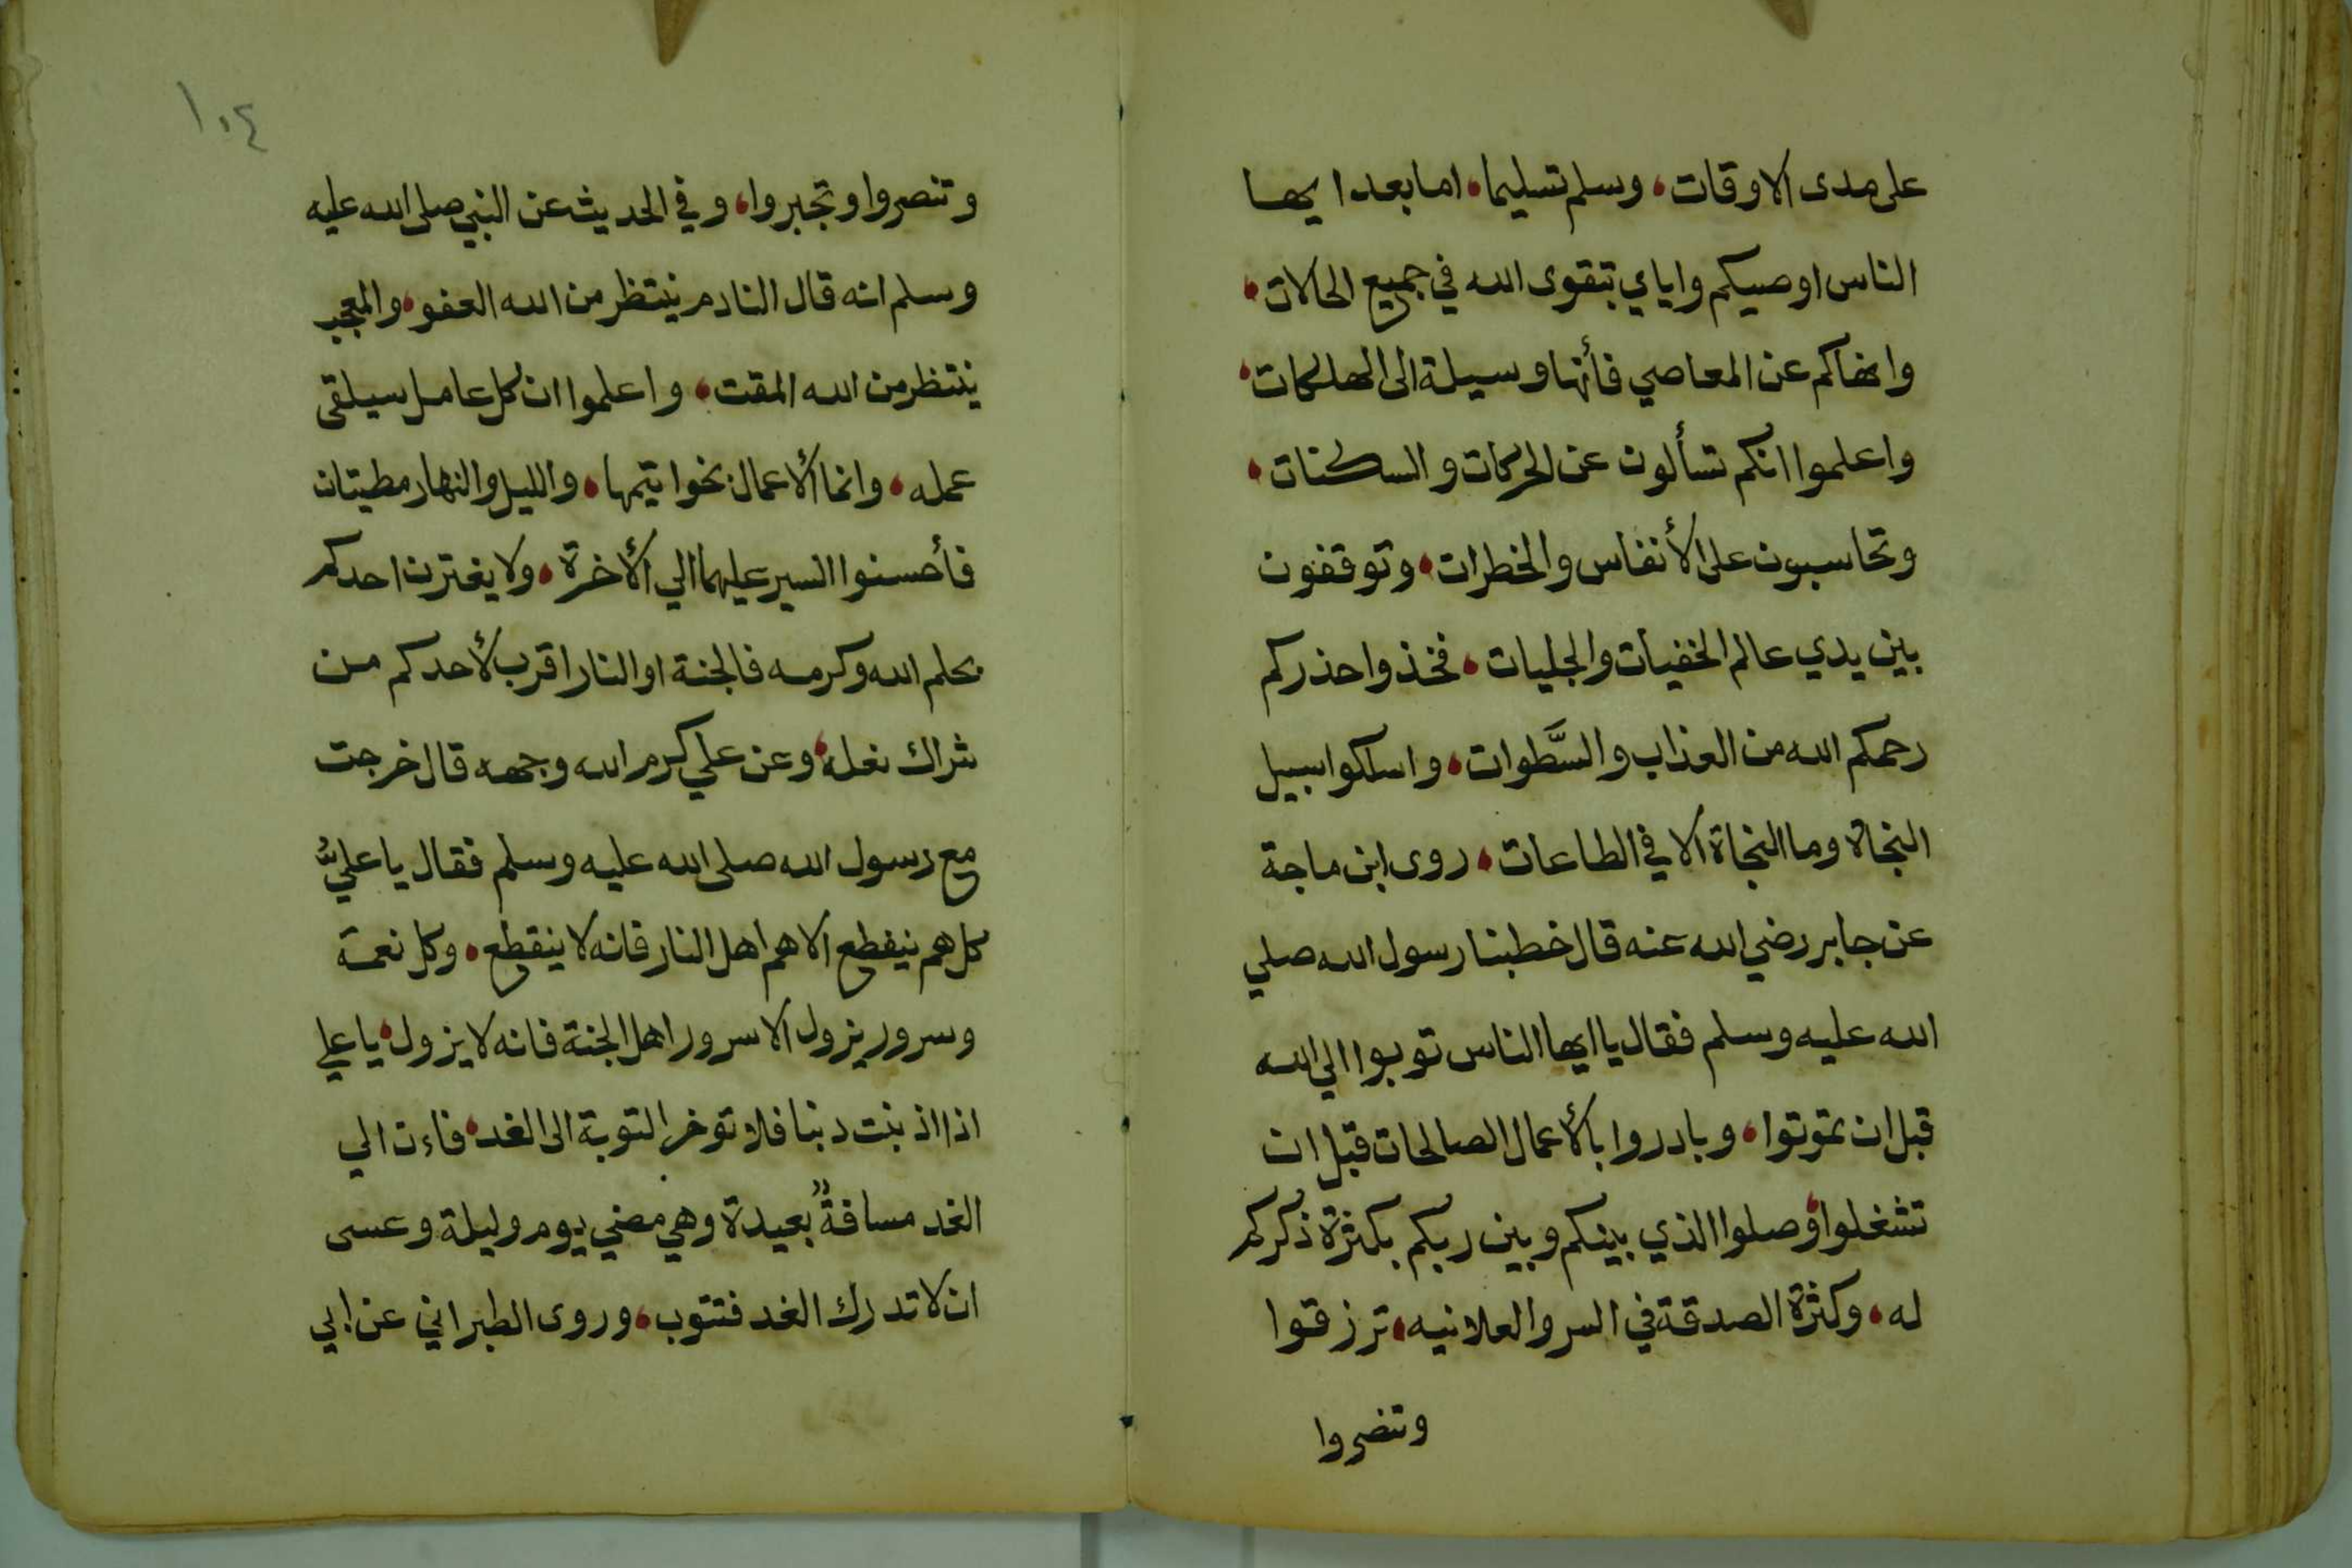 على مدى الاوقات، وسلم تسليما، اما بعد ايها
الناس اوصيكم واياي بتقوى الله في جميع الحالات،
وانهاكم عن المعاصي فأنها وسيلة الى الهلكات،
واعلموا انكم تسألون عن الحركات والسكنات،
وتحاسبون على الأنفاس والخطرات، وتوقفون
بين يدي عالم الخفيات والجليات، فخذوا حذركم
رحمكم الله من العذاب والسَّطوات، واسلكوا سبيل
النجاة وما النجاة الا في الطاعات، روى ابن ماجة
عن جابر رضي الله عنه قال خطبنا رسول الله صلي
الله عليه وسلم فقال يا ايها الناس توبوا الي الله
قبل ان تموتوا، وبادروا بالأعمال الصالحات قبل ان
تشغلوا، وصلوا الذي بينكم وبين ربكم بكثرة ذكركم
له، وكثرة الصدقة في السر والعلانيه، ترزقوا
وتنصروا
١٠٤
وتنصروا وتجبروا، وفي الحديث عن النبي صلى الله عليه
وسلم انه قال النادم ينتظر من الله العفو، والمعجب
ينتظر من الله المقت، واعلموا ان كل عامل سيلقى
عمله، وانما الأعمال بخواتيمها، والليل والنهار مطيتان
فأحسنوا السير عليهما الي الأخرة، ولا يغترن احدكم
بحلم الله وكرمه فالجنة او النار اقرب لأحدكم من
شراك نعله، وعن علي كرم الله وجهه قال خرجت
مع رسول الله صلى الله عليه وسلم فقال يا عليُّ
كل هم ينقطع الا هم اهل النار فانه لا ينقطع، وكل نعمة
وسرور يزول الا سرور اهل الجنة فانه لا يزول، يا علي
اذا اذنبت دنبا فلا توخر التوبة الى الغد، فاءن الي
الغد مسافةً بعيدة وهي مضي يوم وليلة وعسى
ان لا تدرك الغد فتتوب، وروى الطبراني عن ابي